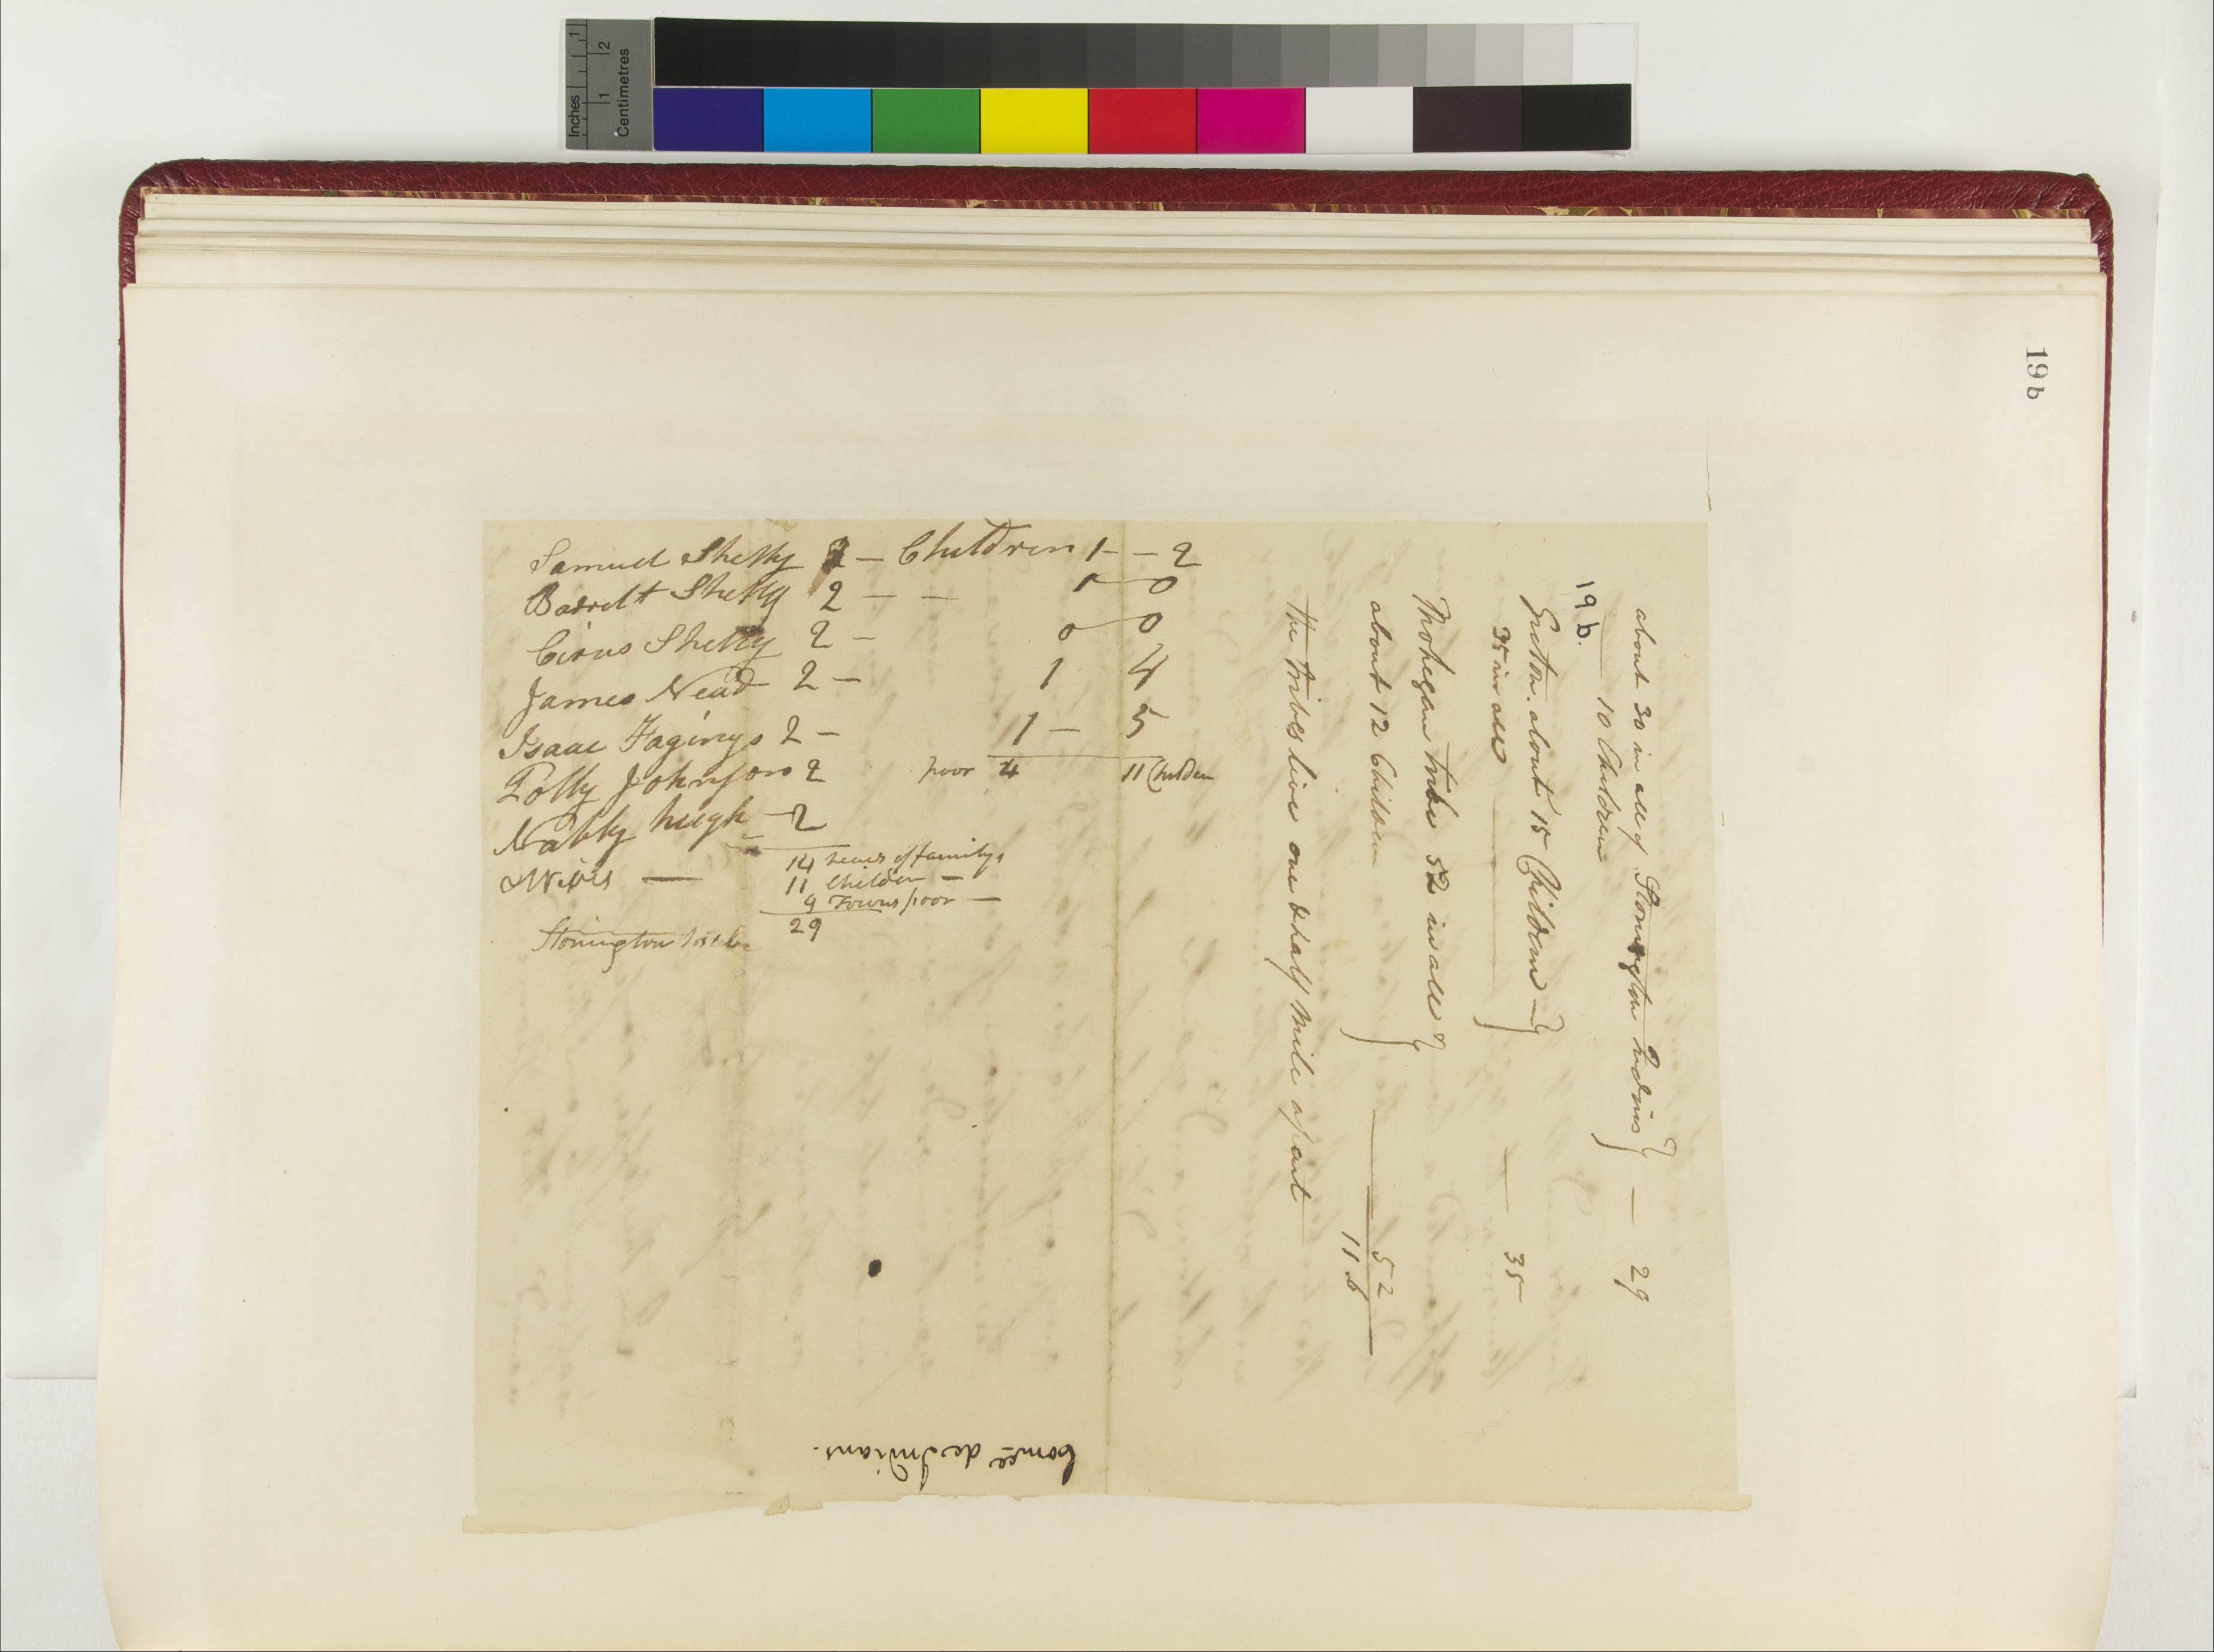 Inches
1
Centimetres
1
2
19b
Samuel Shelly 2 — Children 1 — — 2
Shelly 2 — — 1 — 0
Cirus Shelly 2 — 0 — 0
James Nead 2 — 1 4
Isaac Fagings 2 — 1 — 5
Polly Johnson 2 poor 4 11 Children
Nabby hugh — 2
—
14 heads of familys
11 Children —
9 Towns poor —
29
Stonington
about 30 in all of Stonington Indins } — 29
10 Children
19b.
Groton. about 15 Children — }
35 in all — 35
Mohegan tribe 52 in all }
about 12 Children — 52
116
the tribes live one & half mile apart
Comee de Indians.